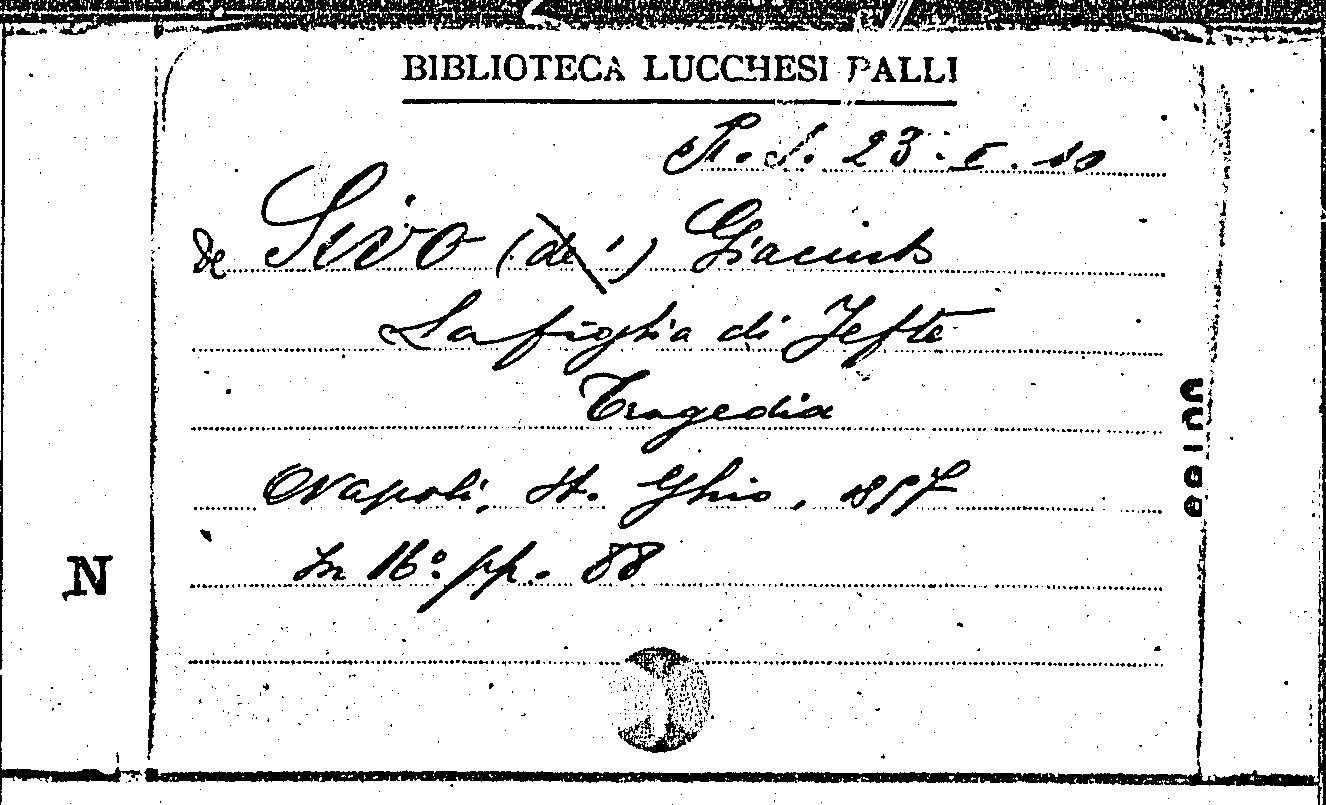 BIBLIOTECA LUCCHESI PALLI
R. S. 23. I. 10
de Sivo (de') Giacinto
La figlia di Jefte
Tragedia
Napoli, St. Ghio, 1857
In 16º. pp. 88
N